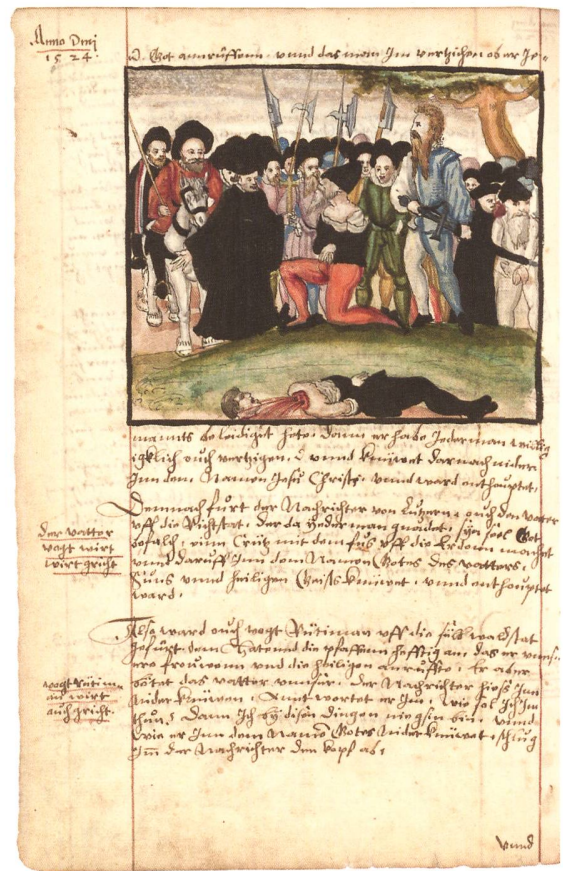 Anno Dmj
1524.
Got anrüffenn vnnd das man Im vertzichen ob er Je=
mannts beleidiget hete. dann er habe Jederman willig
igklich ouch vertzigen. vnnd knüwet darnach nider
Inn dem Namen Jesu Christi vnnd ward enthauptet.
Demnach furt der Nachrichter von Lutzern ouch den vatter
vff die Richtstat. der da yederman gnadet. syn seel Got
befalch. ein Crütz mit dem fuß vff die Erdenn machet
vnnd daruff Inn dem Namen Gotes des vatters.
Suns vnnd heiligen Geists knüwet. vnnd enthouptet
ward.
der vatter
vogt wirt
wirt gricht
Also ward ouch vogt Rütiman vff die walstat
gefürt. dem Hatend die pfaffenn hefftig an das er vnns=
ere frouwenn vnd die heiligen anrüffte. Er aber
bätet das vatter vnnser. der Nachrichter hieß Inn
Nider knüwen. Antwortet er Im. wie sol Ich Im
thun? Dann Ich by disen dingen nie gsin bin. vnnd
wie er Inn dem Namen Gotes Nider knüwet. schlug
Im der Nachrichter den kopf ab.
vogt Rütim=
an wirt
ouch gricht.
vnnd